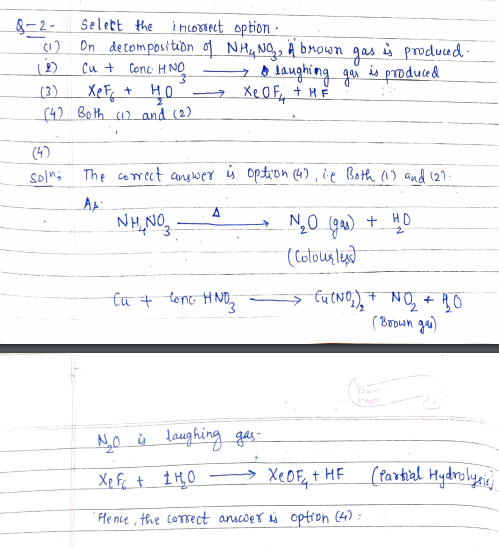 Q-2- Select the incorrect option.
(1) On decomposition of NH4NO3, A brown gas is produced.
(2) Cu + Conc. HNO3 ⟶ A laughing gas is produced
(3) XeF6 + H2O ⟶ XeOF4 + HF
(4) Both (1) and (2)
(4)
Soln: The correct answer is option (4), i.e Both (1) and (2).
As
NH4NO3 —Δ⟶ N2O (gas) + H2O
(Colourless)
Cu + Conc. HNO3 ⟶ Cu(NO3)2 + NO2 + H2O
(Brown gas)
N2O is laughing gas.
XeF6 + 1H2O ⟶ XeOF4 + HF (Partial Hydrolysis)
Hence, the correct answer is option (4).